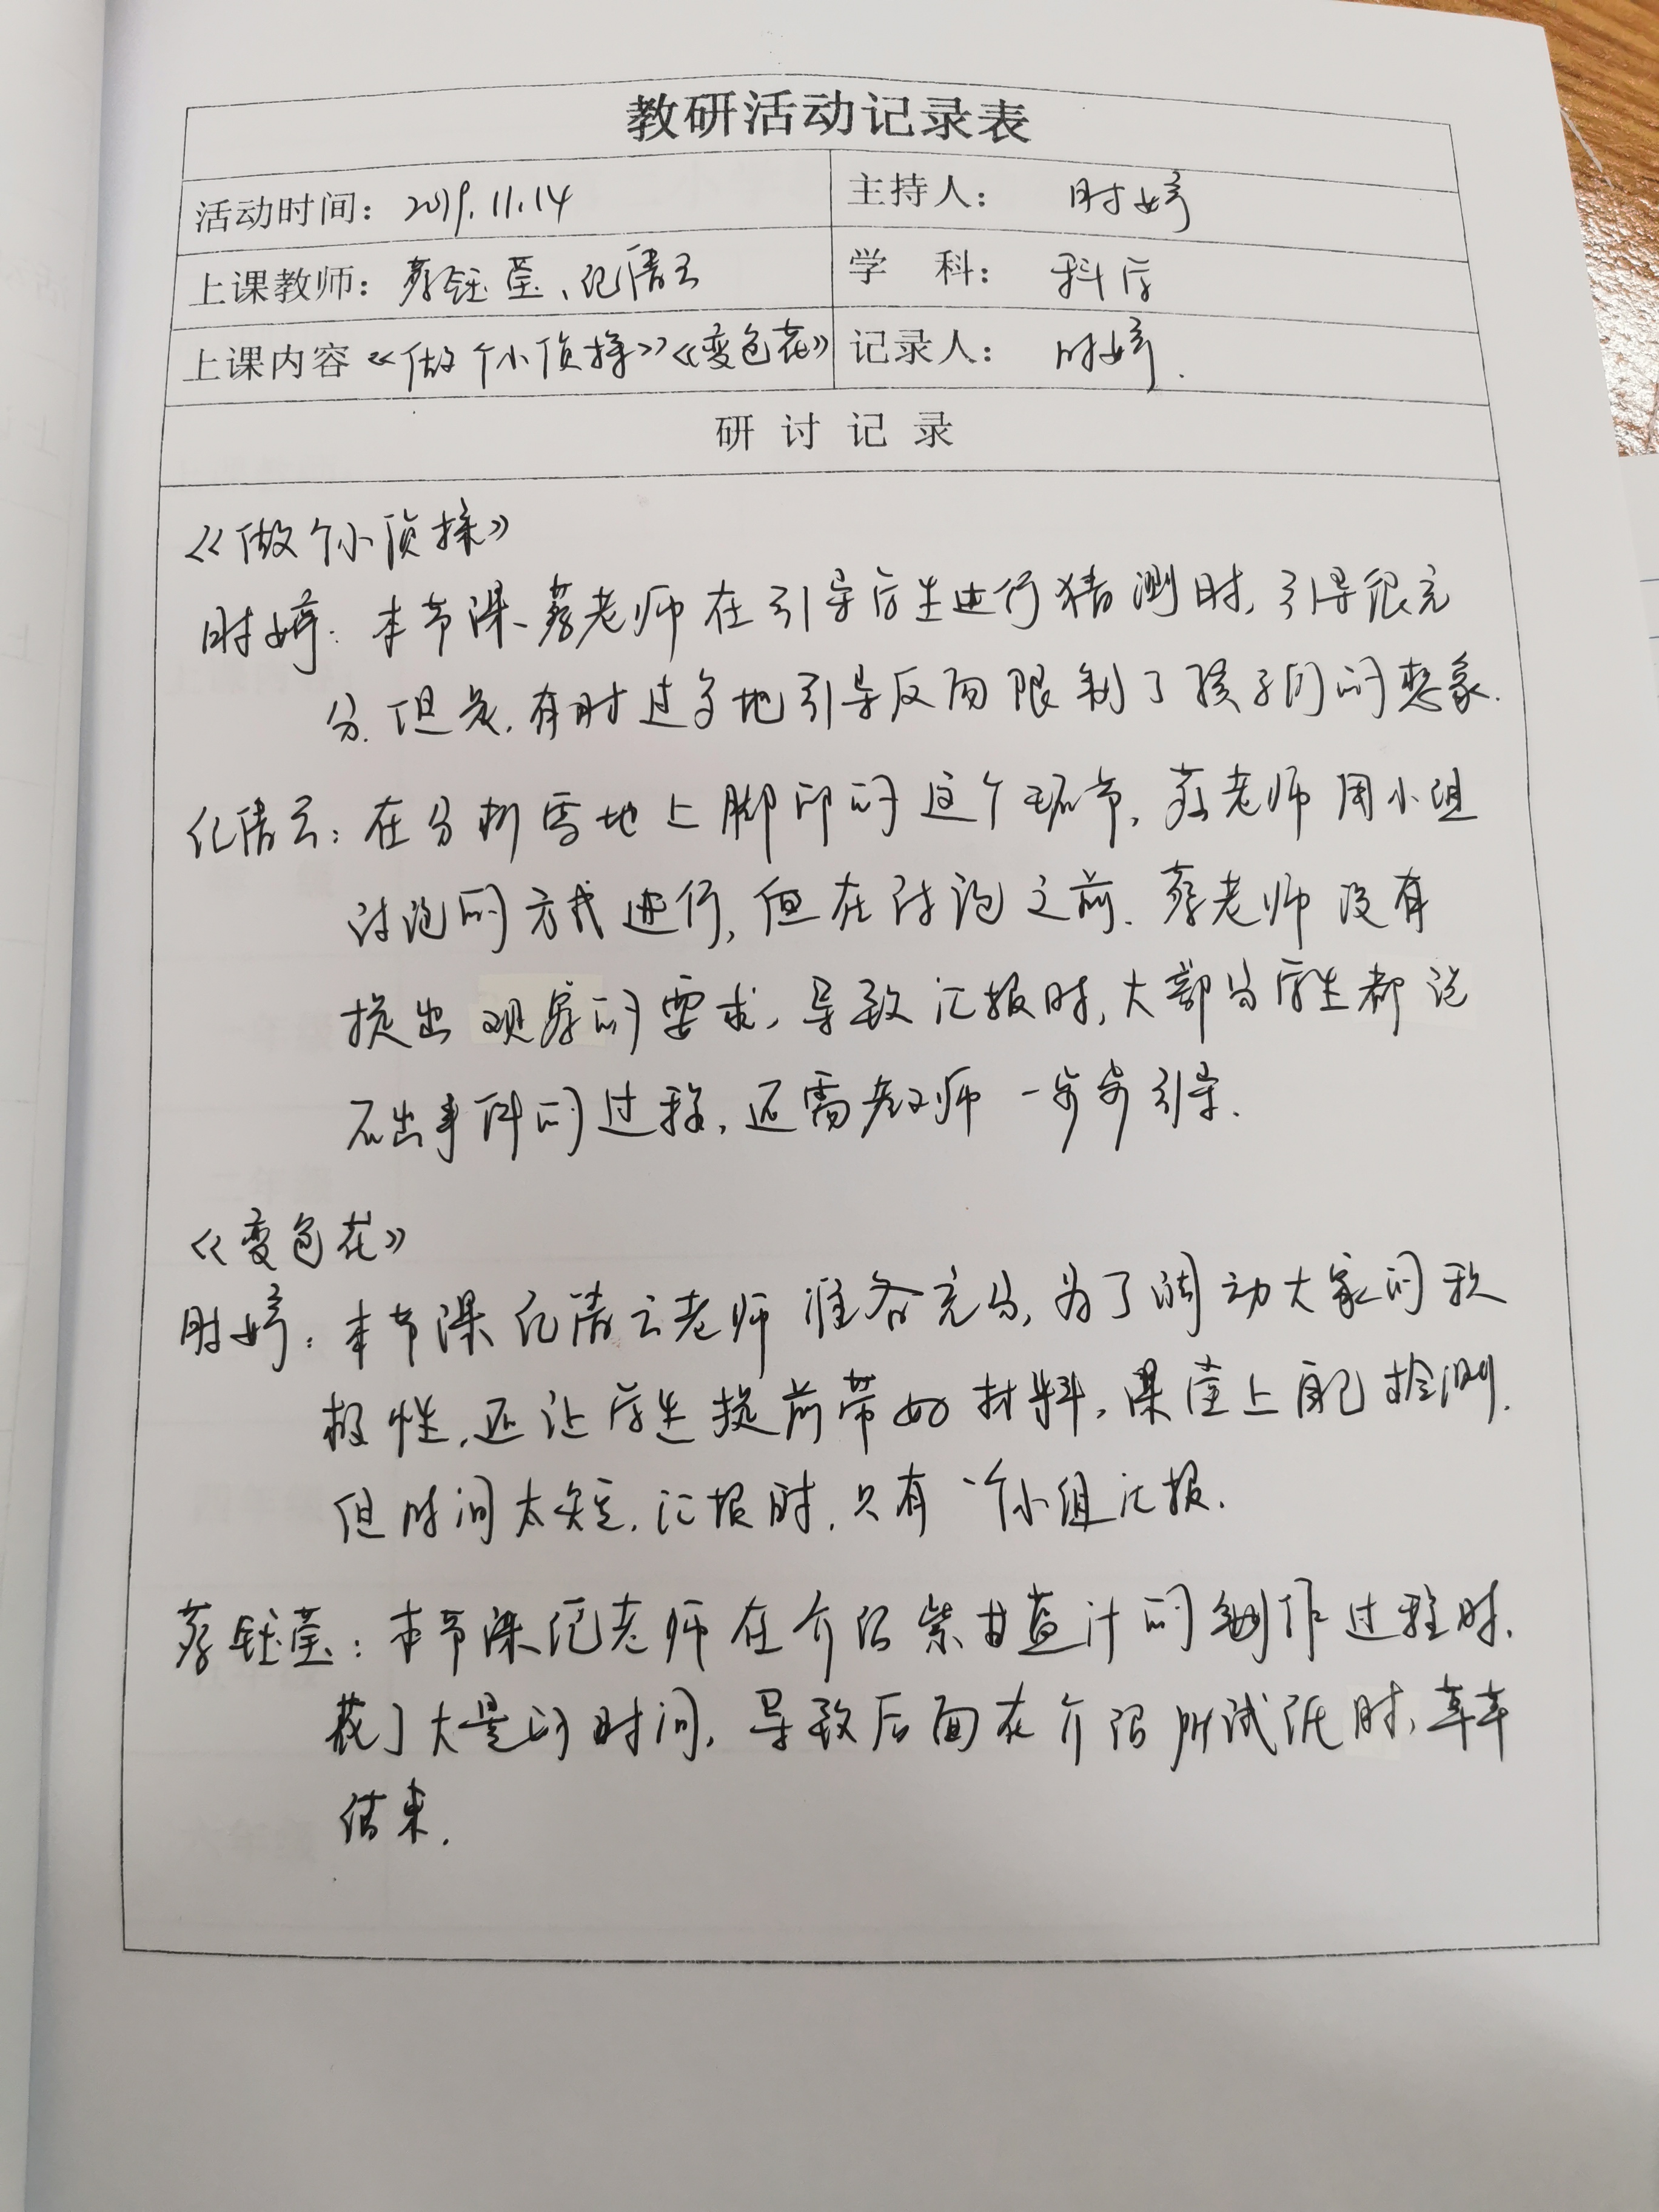 教研活动记录表
活动时间：2019.11.14
主持人：时婷
上课教师：蔡钰莹、纪倩云
学 科：科学
上课内容《做个小侦探》《变色花》
记录人：时婷.
研讨记录
《做个小侦探》
时婷：本节课、蔡老师在引导学生进行猜测时，引导很充
分.但是，有时过多地引导反而限制了孩子们的想象.
纪倩云：在分析雪地上脚印的这个环节，蔡老师用小组
讨论的方式进行，但在讨论之前.蔡老师没有
提出观察的要求，导致汇报时，大部分学生都说
不出事件的过程，还需老师一步步引导.
《变色花》
时婷：本节课纪倩云老师准备充分，为了调动大家的积
极性，还让学生提前带好材料，课堂上自己检测.
但时间太短，汇报时，只有一个小组汇报.
蔡钰莹：本节课纪老师在介绍紫甘蓝汁的制作过程时，
花了大量的时间，导致后面在介绍PH试纸时，草草
结束.